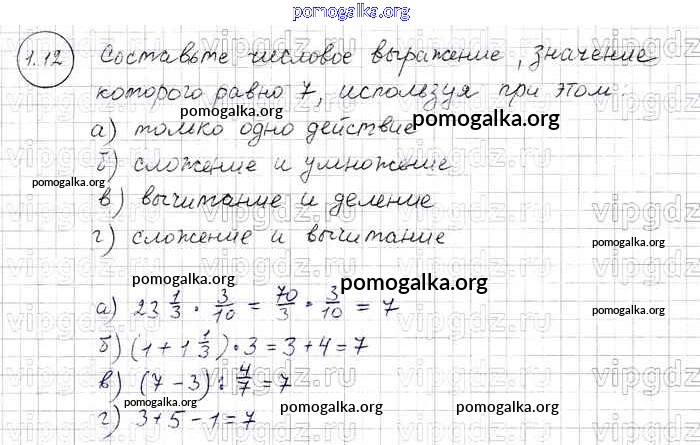 pomogalka.org
1.12 Составьте числовое выражение, значение
которого равно 7, используя при этом:
pomogalka.org pomogalka.org
а) только одно действие
б) сложение и умножение
pomogalka.org
в) вычитание и деление
г) сложение и вычитание
pomogalka.org
pomogalka.org pomogalka.org
а) 23 1/3 · 3/10 = 70/3 · 3/10 = 7
pomogalka.org
б) (1 + 1 1/3) · 3 = 3 + 4 = 7
в) (7 - 3) : 4/7 = 7
pomogalka.org pomogalka.org
г) 3 + 5 - 1 = 7
vipgdz.ru vipgdz.ru vipgdz.ru vipgdz.ru